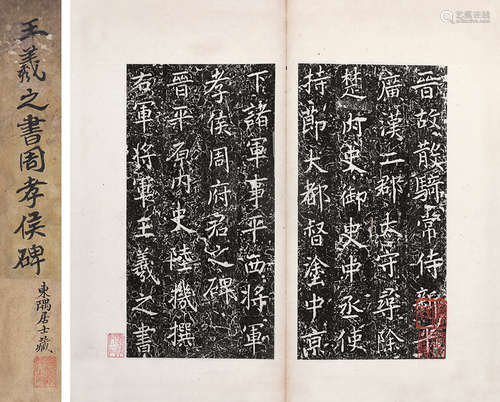 王羲之書周孝侯碑
東隅居士藏
晋故散騎常侍新平
廣漢二郡太守尋除
楚內史御史中丞使
持節大都督塗中京
下諸軍事平西將軍
孝侯周府君之碑
晉平原內史陸機撰
右軍將軍王羲之書